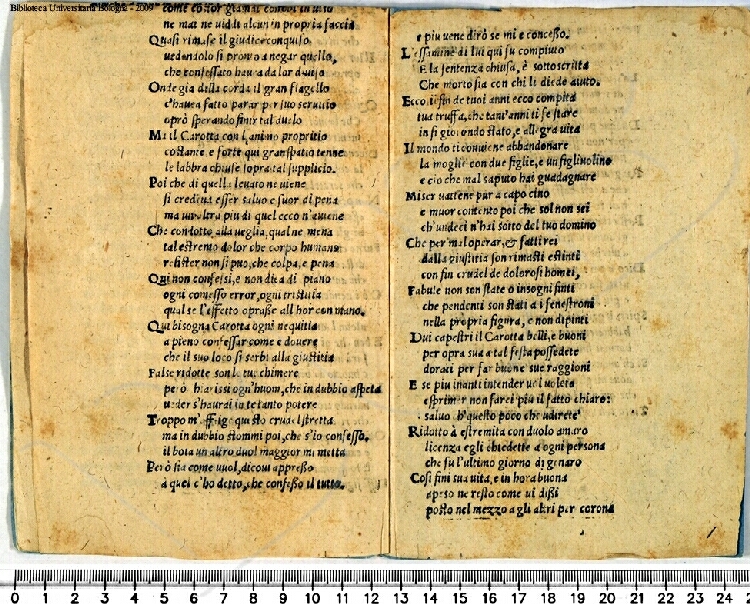 Biblioteca Universitaria Bologna - 2009
ne mai ne uiddi alcun in propria faccia
Quasi rimase il giudice conquiso
uedendolo si pronto a negar quello,
che confessato haura da lor diuiso
Onde gia della corda il gran flagello
c'hauea fatto parar per suo seruitio
oprò sperando finir tal duolo
Ma il Carotta con l'animo propritio
costante e forte qui gran spatio tenne
le labbra chiuse sopra tal supplicio.
Poi che di quella leuato ne uiene
si credeua esser saluo e fuor di pena
ma un'altra piu di quel ecco n'auuene
Che condotto alla ueglia, qual ne mena
tal estremo dolor che corpo humano
resister non si puo, che colpa, e pena
Qui non confessi, e non dica di piano
ogni comesso error, ogni tristitia
qual se l'effetto oprasse all hor con mano.
Qui bisogna Carotta ogni nequitia
a pieno confessar come e douere
che il suo loco si serbi alla giustitia
False ridotte son le tue chimere
però ogn'huom, che in dubbio aspeta
ueder s'haurai in te tanto potere
Troppo m' questo crudel stretta
ma in dubbio stommi poi, che s'io confesso,
il boia un altro duol maggior mi metta
Però sia come uuol, dicoui appresso
à quei c'ho detto, che confesso il tutto.
e piu uene dirò se mi e concesso.
L'essamine di lui qui fu compiuto
E la sentenza chiusa, è sottoscritta
Che morto sia con chi li diede aiuto.
Ecco il fin de tuoi anni ecco compita
tua truffa, che tant'anni ti fe stare
in si giocondo stato, e allegra uita
Il mondo ti conuiene abbandonare
la moglie con due figlie, e un figliuolino
e cio che mal saputo hai guadagnare
Miser uattene pur a capo cino
e muor contento poi che sol non sei
ch'undeci n'hai sotto del tuo domino
Che per mal oprar, & fatti rei
dalla giustitia son rimasti estinti
con fin crudel de dolorosi homei,
Fabule non son state o insogni finti
che pendenti son stati a i fenestroni
nella propria figura, e non dipinti
Dui capestri il Carotta belli, e buoni
per opra sua a tal festa possedete
dorati per far buone sue raggioni
E se piu inanti intender uoleta
esprimer non farei piu il fatto chiaro:
saluo h'questo poco che udirete
Ridotto à estremita con duolo amaro
licenza egli chiedette a ogni persona
che fu l'ultimo giorno di genaro
Cosi finì sua uita, e in hora buona
apeso ne resto come ui dissi
posto nel mezzo a gli altri per corona
0 1 2 3 4 5 6 7 8 9 10 11 12 13 14 15 16 17 18 19 20 21 22 23 24